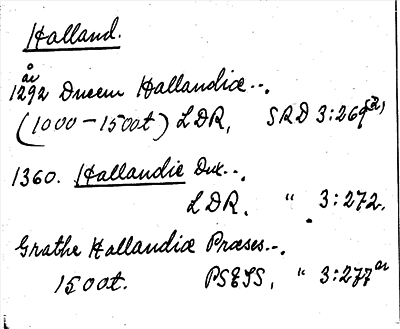 Halland.
år
1292 Ducem Hallandiæ--.
(1000-1500t) LDR, SRD 3:269
1360. Hallandie Dux--.
LDR. " 3:272.
Grathe Hallandiæ Præses--.
1500t. PSEJS, " 3:277 ar